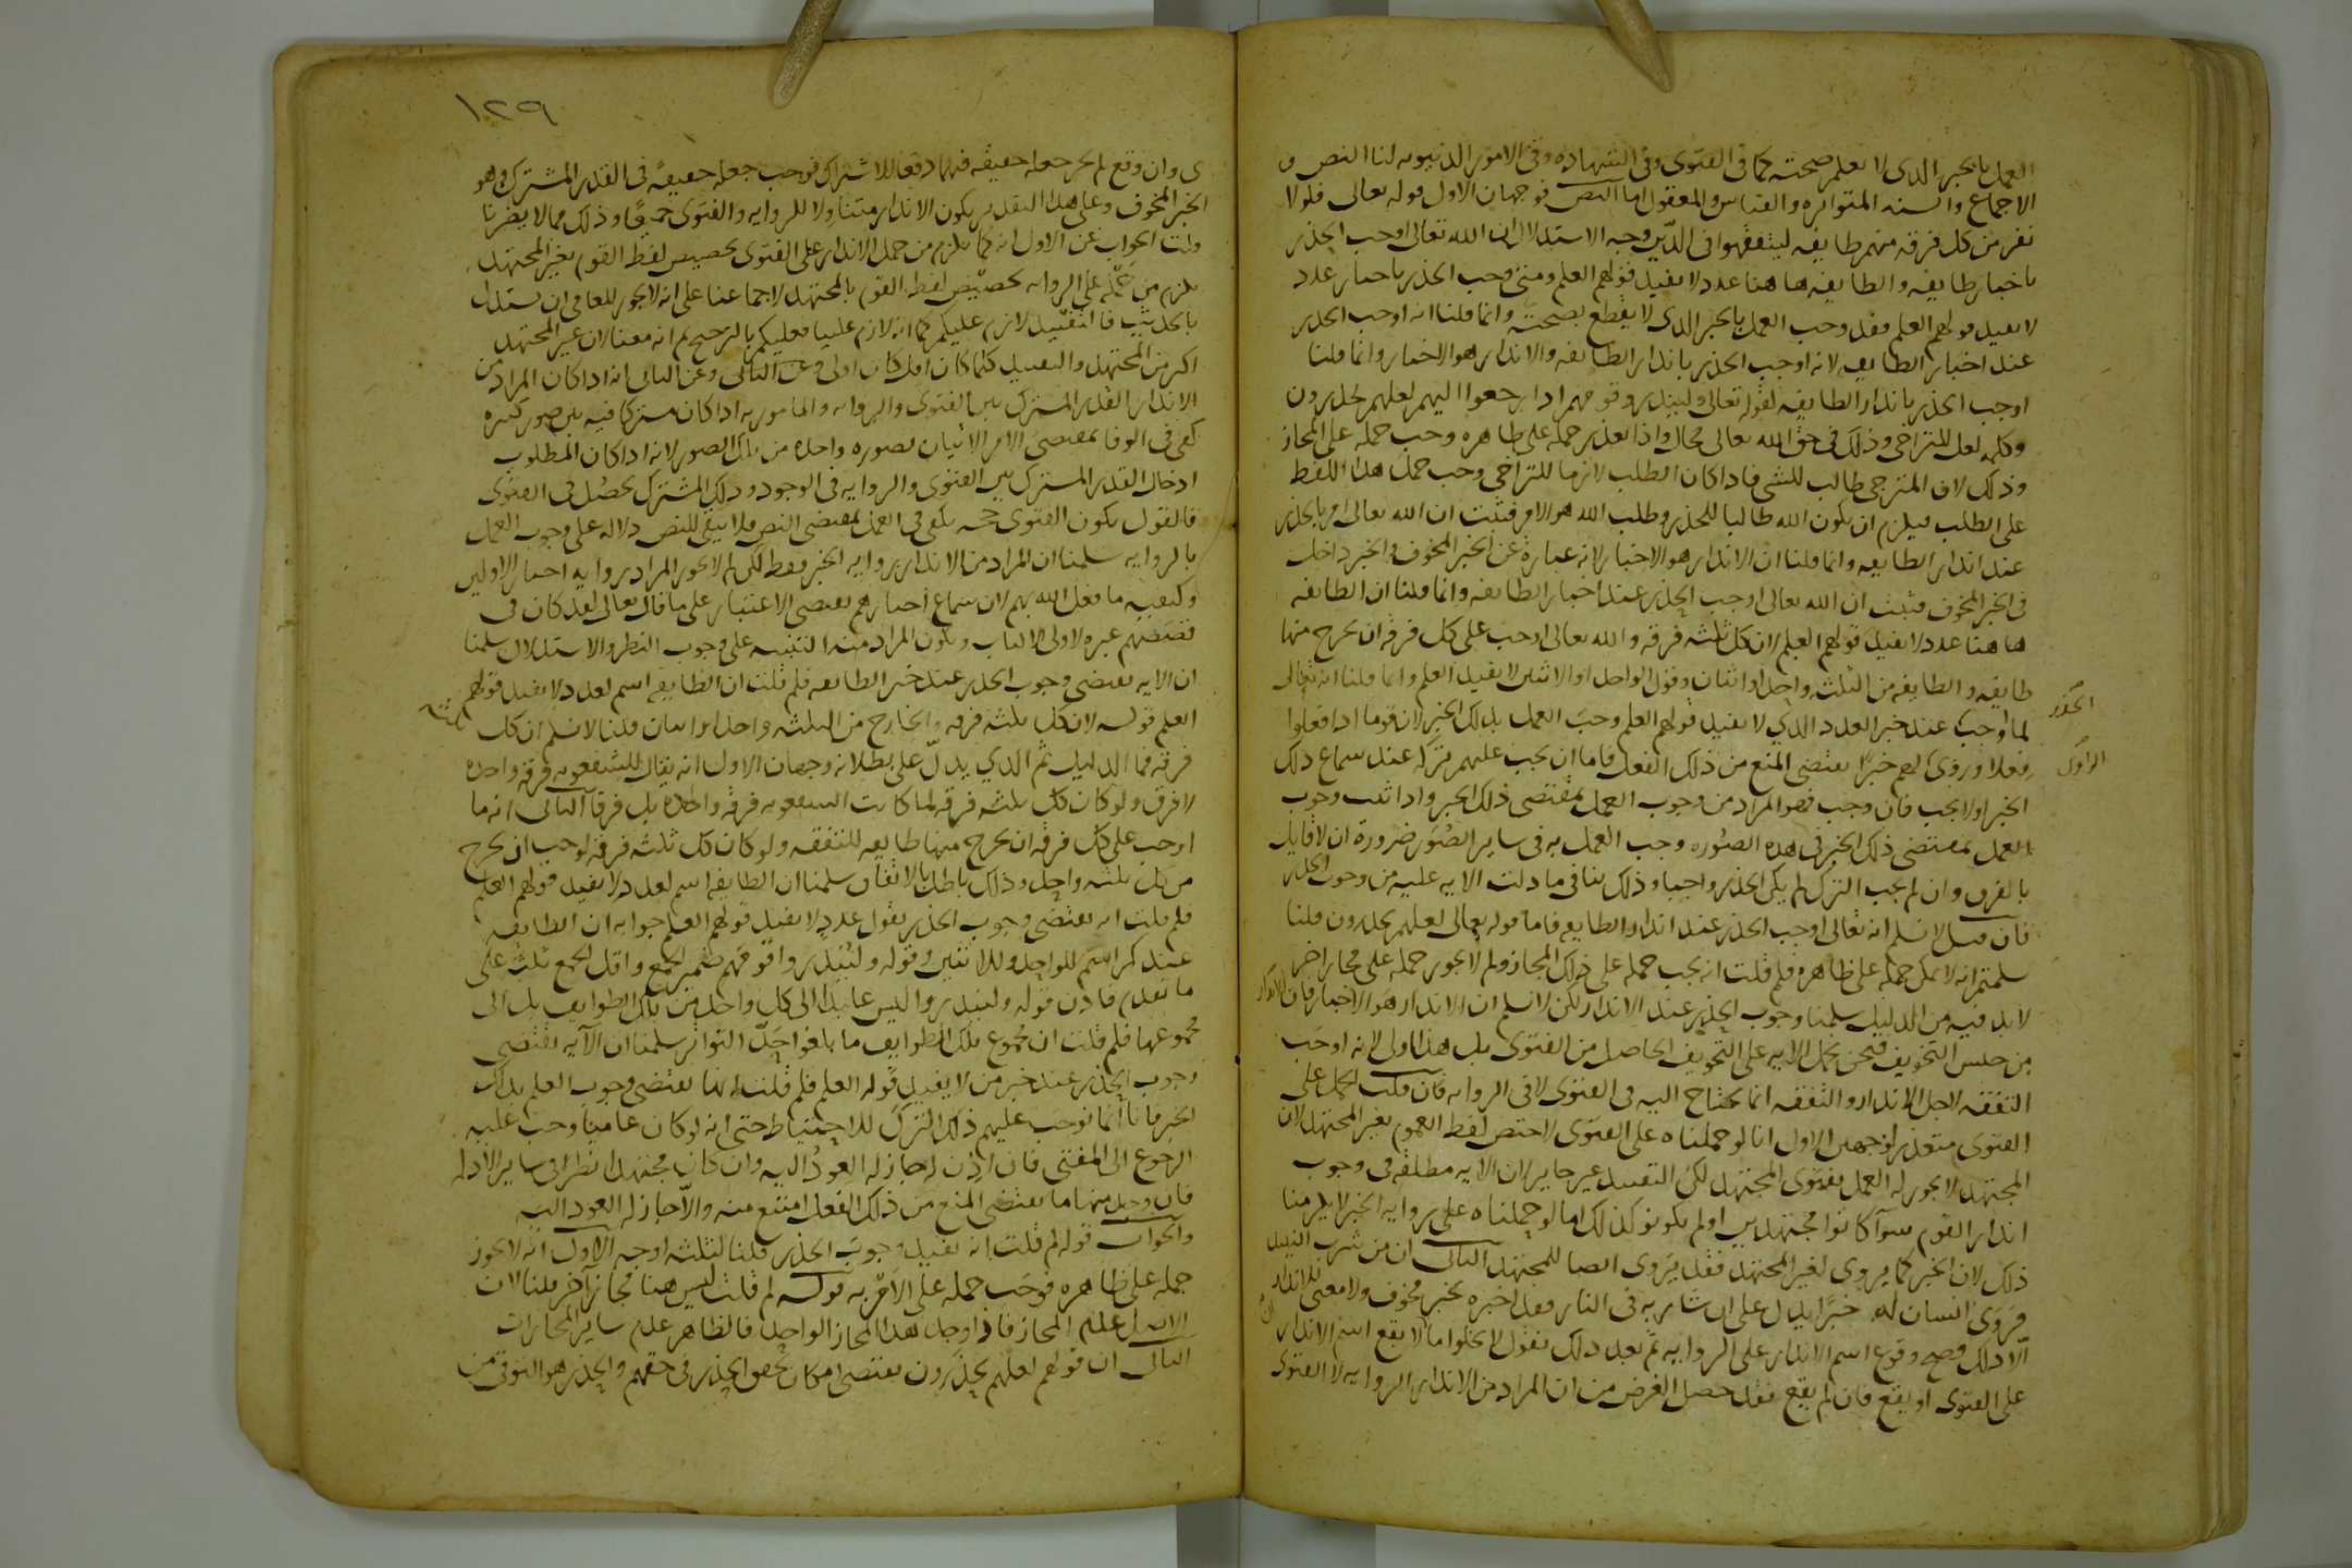 العمل بالخبر الذى لا نعلم صحته كما فى الفتوى وفى الشهاده وفى الامور الدنيويه لنا النص و
الاجماع والسنه المتواتره والقياس والمعقول اما النص فوجهان الاول قوله تعالى فلولا
نفر من كل فرقه منهم طايفه ليتفقهوا فى الدين وجه الاستدلال ان الله تعالى اوجب الحذر
باخبار طايفه والطايفه هاهنا عدد لا يفيد قولهم العلم ومتى وجب الحذر باخبار عدد
لا يفيد قولهم العلم فقد وجب العمل بالخبر الذى لا يقطع بصحته وانما قلنا انه اوجب الحذر
عند اخبار الطايفه لانه اوجب الحذر بانذار الطايفه والانذار هو الاخبار وانما قلنا
اوجب الحذر بانذار الطايفه لقوله تعالى ولينذروا قومهم اذا رجعوا اليهم لعلهم يحذرون
وكلمه لعل للتراخى وذلك فى حق الله تعالى محال واذا تعذر حمله على ظاهره وجب حمله على المجاز
وذلك لان المترجى طالب للشى فاذا كان الطلب لازما للتراخى وجب حمل هذا اللفظ
على الطلب فيلزم ان يكون الله طالبا للحذر وطلب الله هو الامر فثبت ان الله تعالى امر بالحذر
عند انذار الطايفه وانما قلنا ان الانذار هو الاخبار لانه عبارة عن الخبر المخوف والخبر داخل
فى الخبر المخوف فثبت ان الله تعالى اوجب الحذر عند اخبار الطايفه وانما قلنا ان الطايفه
هاهنا عدد لا يفيد قولهم العلم لان كل ثلثه فرقه والله تعالى اوجب على كل فرقه ان تخرج منها
طايفه والطايفه من الثلثه واحد او اثنان وقول الواحد او الاثنين لا يفيد العلم وانما قلنا انه تعالى
لما اوجب عند خبر العدد الذي لا يفيد قولهم العلم وجب العمل بذلك الخبر لان قوما اذا فعلوا
الحذر
فعلا وروى لهم خبرًا يقتضى المنع من ذلك الفعل فاما ان يجب عليهم تركه عند سماع ذلك
الراوى
الخبر او لا يجب فان وجب فهو المراد من وجوب العمل بمقتضى ذلك الخبر واذا ثبت وجوب
العمل بمقتضى ذلك الخبر فى هذه الصوره وجب العمل به فى ساير الصور ضرورة ان لا قايل
بالفرق وان لم يجب الترك لم يكن الحذر واجبا وذلك ينافى ما دلت الايه عليه من وجوب الحذر
فان قيل لا نسلم انه تعالى اوجب الحذر عند انذار الطايفه فاما قوله تعالى لعلهم يحذرون قلنا
سلمتم انه لا يمكن حمله على ظاهره فلم قلت انه يجب حمله على ذلك المجاز ولم لا يجوز حمله على مجاز اخر
لابد فيه من الدليل سلمنا وجوب الحذر عند الانذار لكن لا نسلم ان الانذار هو الاخبار فان الانذار
من جنس التخويف فنحن نحمل الايه على التخويف الحاصل من الفتوى بل هذا اولى لانه اوجب
التفقه لاجل الانذار والتفقه انما يحتاج اليه فى الفتوى لا فى الروايه فان قلت الحمل على
الفتوى متعذر لوجهين الاول انا لو حملناه على الفتوى لاختص لفظ القوم بغير المجتهد لان
المجتهد لا يجوز له العمل بفتوى المجتهد لكن التقييد غير جايز لان الايه مطلقه فى وجوب
انذار القوم سوآ كانوا مجتهدين او لم يكونوا كذلك اما لو حملناه على روايه الخبر لا يلزمنا
ذلك لان الخبر كما يروى لغير المجتهد فقد يروى ايضا للمجتهد الثانى ان من شرب النبيذ
فروى انسان له خبرًا يدل على ان شاربه فى النار فقد اخبره بخبر مخوف ولا معنى للانذار
الا ذلك فصح وقوع اسم الانذار على الروايه ثم بعد ذلك نقول لا يخلوا اما ان لا يقع اسم الانذار
على الفتوى او يقع فان لم يقع فقد حصل الغرض من ان المراد من الانذار الروايه لا الفتوى
١٢٩
ى وان وقع لم يجز جعله حقيقه فيهما دفعا للاشتراك فوجب جعله حقيقةً فى القدر المشترك وهو
الخبر المخوف وعلى هذا التقدير يكون الانذار متناولا للروايه والفتوى جميعًا وذلك مما لا يضرنا
قلت الجواب عن الاول انه كما يلزم من حمل الانذار على الفتوى تخصيص لفظ القوم بغير المجتهد
يلزم من حمله على الروايه تخصيص لفظ القوم بالمجتهد لاجماعنا على انه لا يجوز للعامى ان يستدل
بالحديث فالتقييد لازم عليكم كما انه لازم علينا فعليكم بالترجيح ثم انه معنا لان غير المجتهد
اكثر من المجتهد والتقييد كلما كان اقل كان اولى وعن الثانى انه اذا كان المراد من
الانذار القدر المشترك بين الفتوى والروايه والمامور به اذا كان مشتركا فيه بين صور كثيره
كفى فى الوفا بمقتضى الامر الاتيان بصوره واحده من تلك الصور لانه اذا كان المطلوب
ادخال القدر المشترك بين الفتوى والروايه فى الوجود وذلك المشترك يحصل فى الفتوى
فالقول بكون الفتوى حجه يكفى فى العمل بمقتضى النص فلا يبقى للنص دلاله على وجوب العمل
بالروايه سلمنا ان المراد من الانذار روايه الخبر فقط لكن لم لا يجوز المراد روايه اخبار الاولين
وكيفيه ما فعل الله بهم لان سماع اخبارهم يقتضى الاعتبار على ما قال تعالى لقد كان فى
قصصهم عبره لاولى الالباب ويكون المراد منه التنبيه على وجوب النظر والاستدلال سلمنا
ان الايه يقتضى وجوب الحذر عند خبر الطايفه فلم قلت ان الطايفه اسم لعدد لا يفيد قولهم
العلم قوله لان كل ثلثه فرقه والخارج من الثلثه واحد او اثنان قلنا لا نسلم ان كل
ثلثه
فرقه فما الدليل ثم الذي يدلّ على بطلانه وجهان الاول انه يقال للشفعويه فرقه واحده
لا فرق ولو كان كل ثلثه فرقه لما كانت الشفعويه فرقه واحده بل فرقا الثانى انه ما
اوجب على كل فرقه ان يخرج منها طايفه للتفقه ولو كان كل ثلثه فرقه لوجب ان يخرج
من كل ثلثه واحد وذلك باطل بالاتفاق سلمنا ان الطايفه اسم لعدد لا يفيد قولهم العلم
فلم قلت انه يقتضى وجوب الحذر بقول عدد لا يفيد قولهم العلم جوابه ان الطايفه
عندكم اسم للواحد وللاثنين وقوله ولينذروا قومهم ضمير الجمع واقل الجمع ثلث على
ما تقدم فاذن قوله ولينذروا ليس عايدًا الى كل واحد من تلك الطوايف بل الى
مجموعها فلم قلت ان مجموع تلك الطوايف ما بلغوا حدّ التواتر سلمنا ان الآيه تقتضى
وجوب الحذر عند خبر من لا يفيد قوله العلم فلم قلت انها تقتضى وجوب العلم بذلك
الخبر فانا انما نوجب عليهم ذلك الترك للاحتياط حتى انه لو كان عاميًا وجب عليه
الرجوع الى المفتى فان اذن له جاز له العود اليه وان كان مجتهدا نظر فى ساير الادله
فان وجد منها ما يقتضى المنع من ذلك الفعل امتنع منه والّا جاز له العود اليه
والجواب قوله لم قلت انه يفيد وجوب الحذر قلنا لثلثه اوجه الاول انه لا يجوز
حمله على ظاهره فوجب حمله على الامر به قوله لم قلت ليس هنا مجاز آخر قلنا لان
الاصل عدم المجاز فاذا وجد هذا المجاز الواحد فالظاهر عدم ساير المجازات
الثانى ان قولهم لعلهم يحذرون يقتضى امكان تحقق الحذر فى حقهم والحذر هو التوقى من